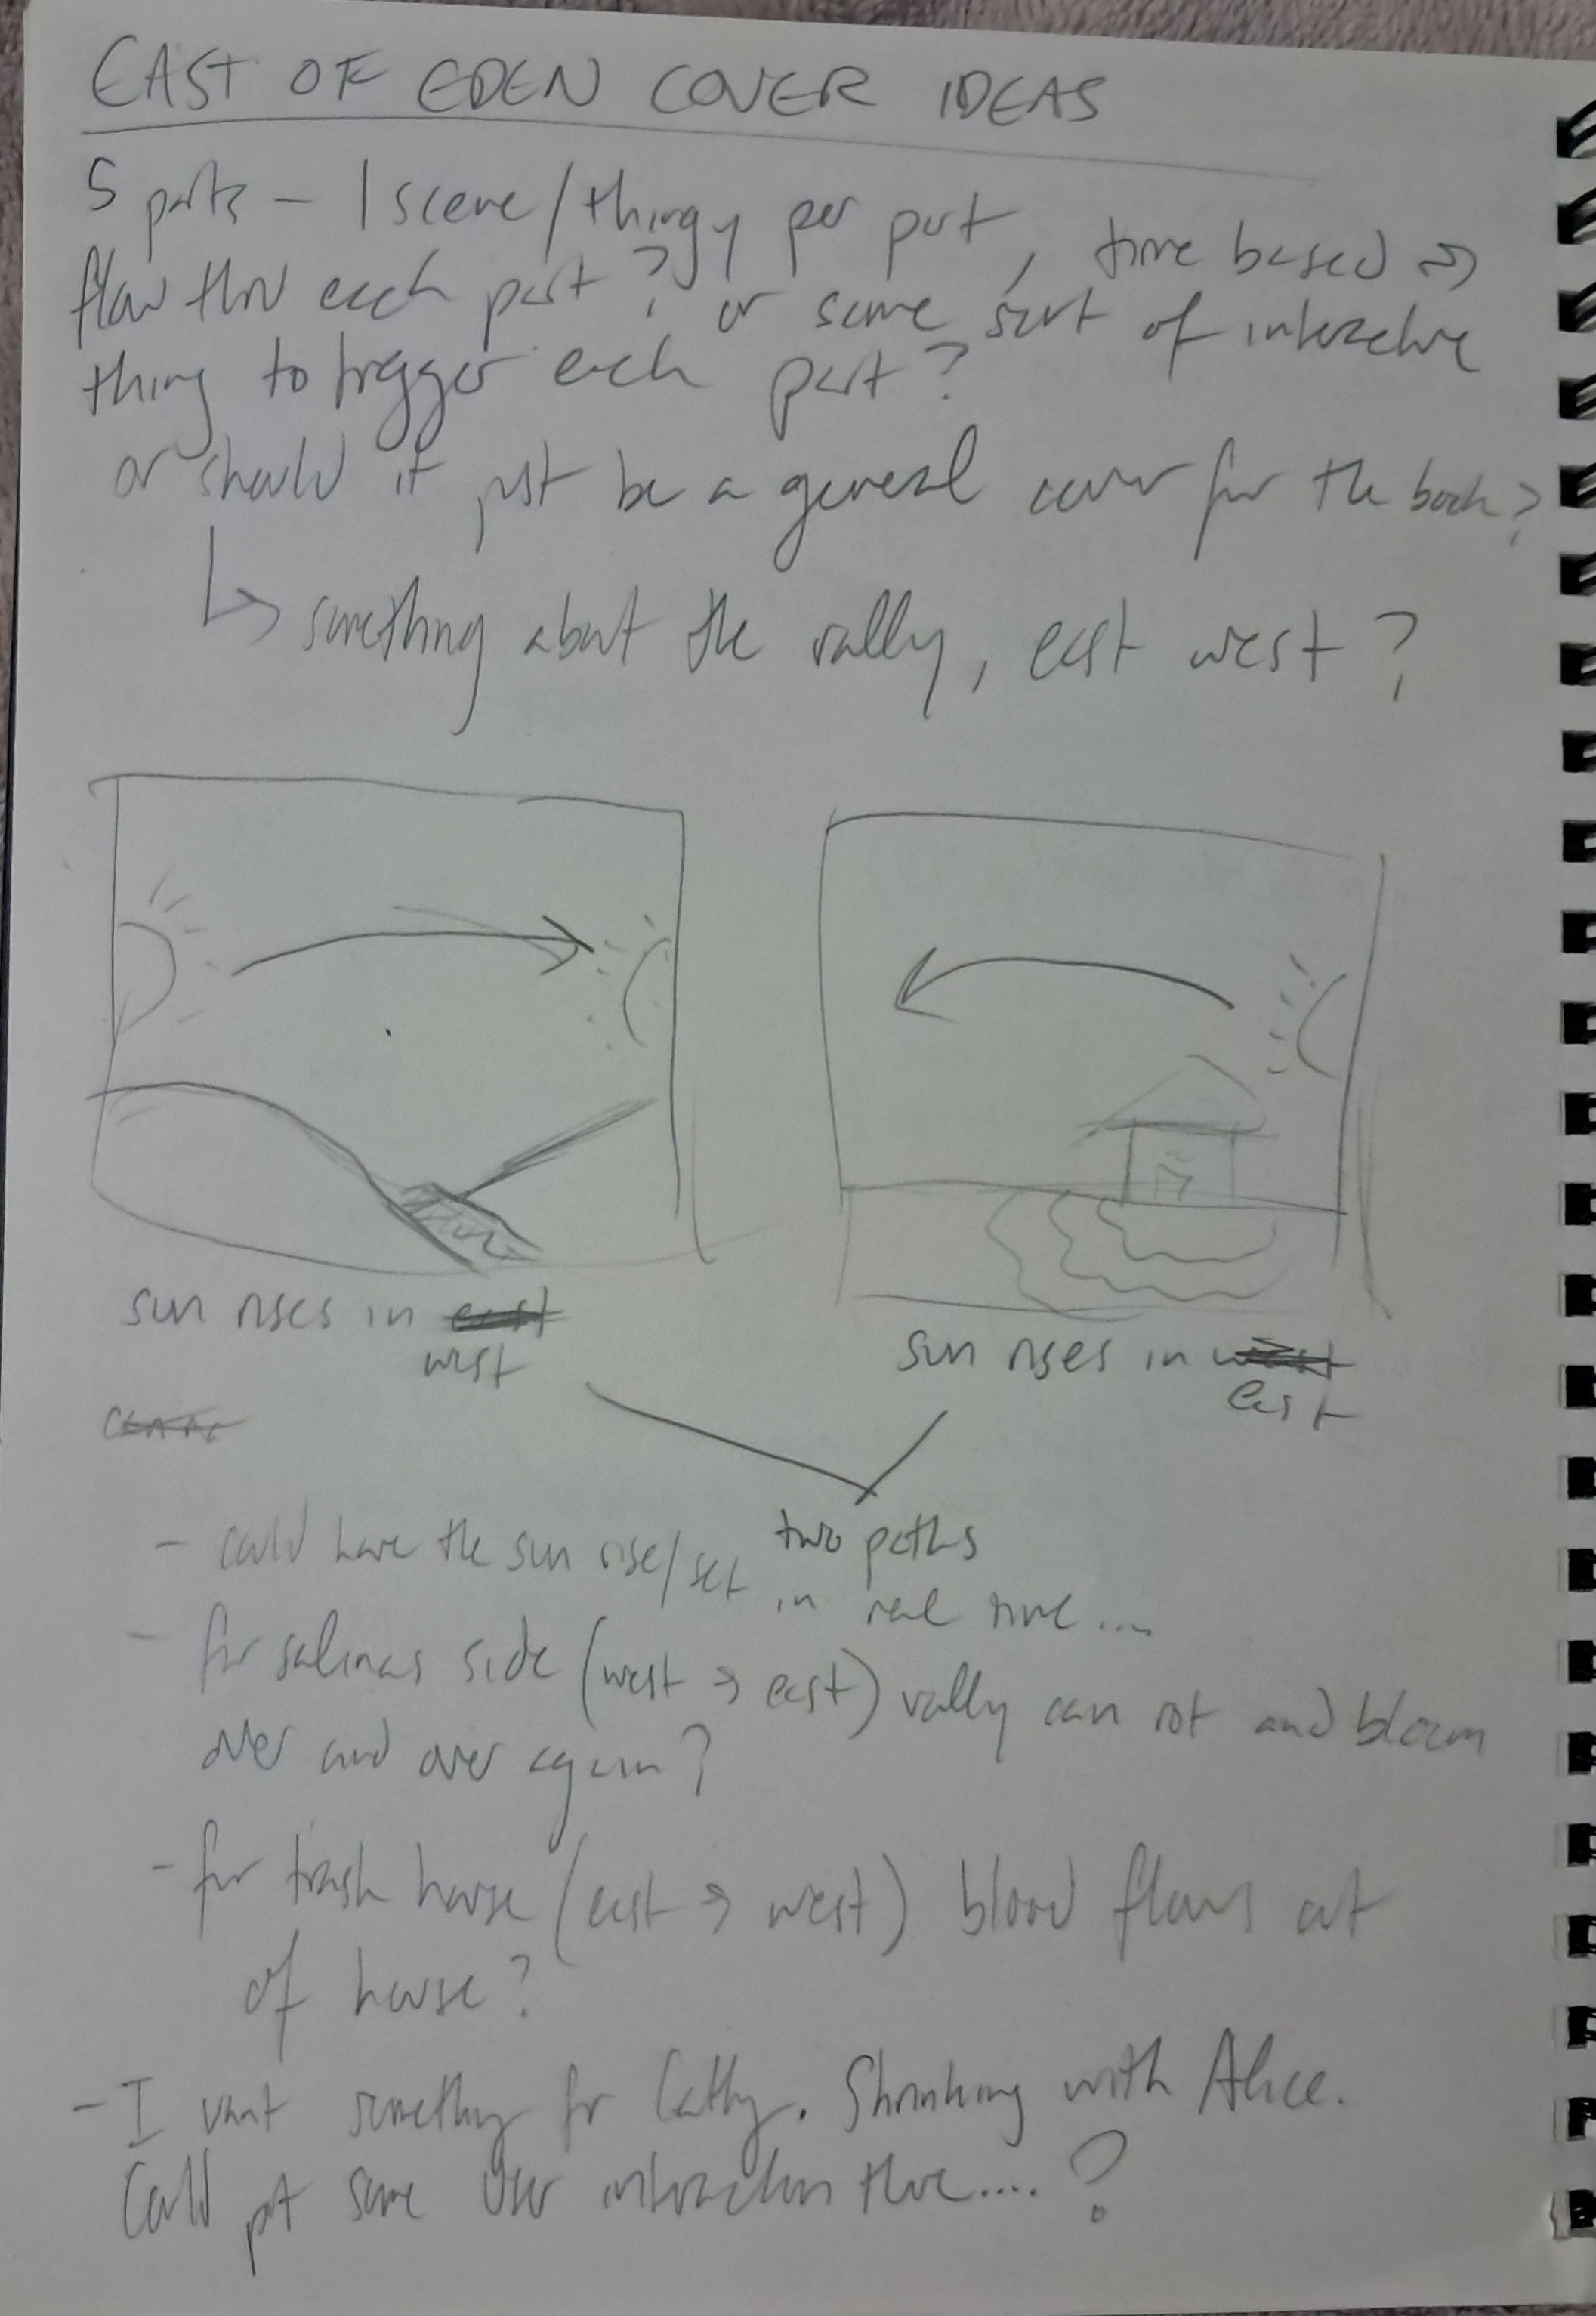 EAST OF EDEN COVER IDEAS
5 parts - 1 scene/thingy per part, time based →
flow thru each part? or some sort of interactive
thing to trigger each part?
or should it just be a general cover for the book?
↳ something about the vally, east west?
sun rises in east
west
sun rises in west
east
two paths
- could have the sun rise/set in real time....
- for salinas side (west → east) vally can rot and bloom
over and over again?
- for trask house (east → west) blood flows out
of house?
- I want something for Cathy. Shrinking with Alice.
Could put some user interaction there....?